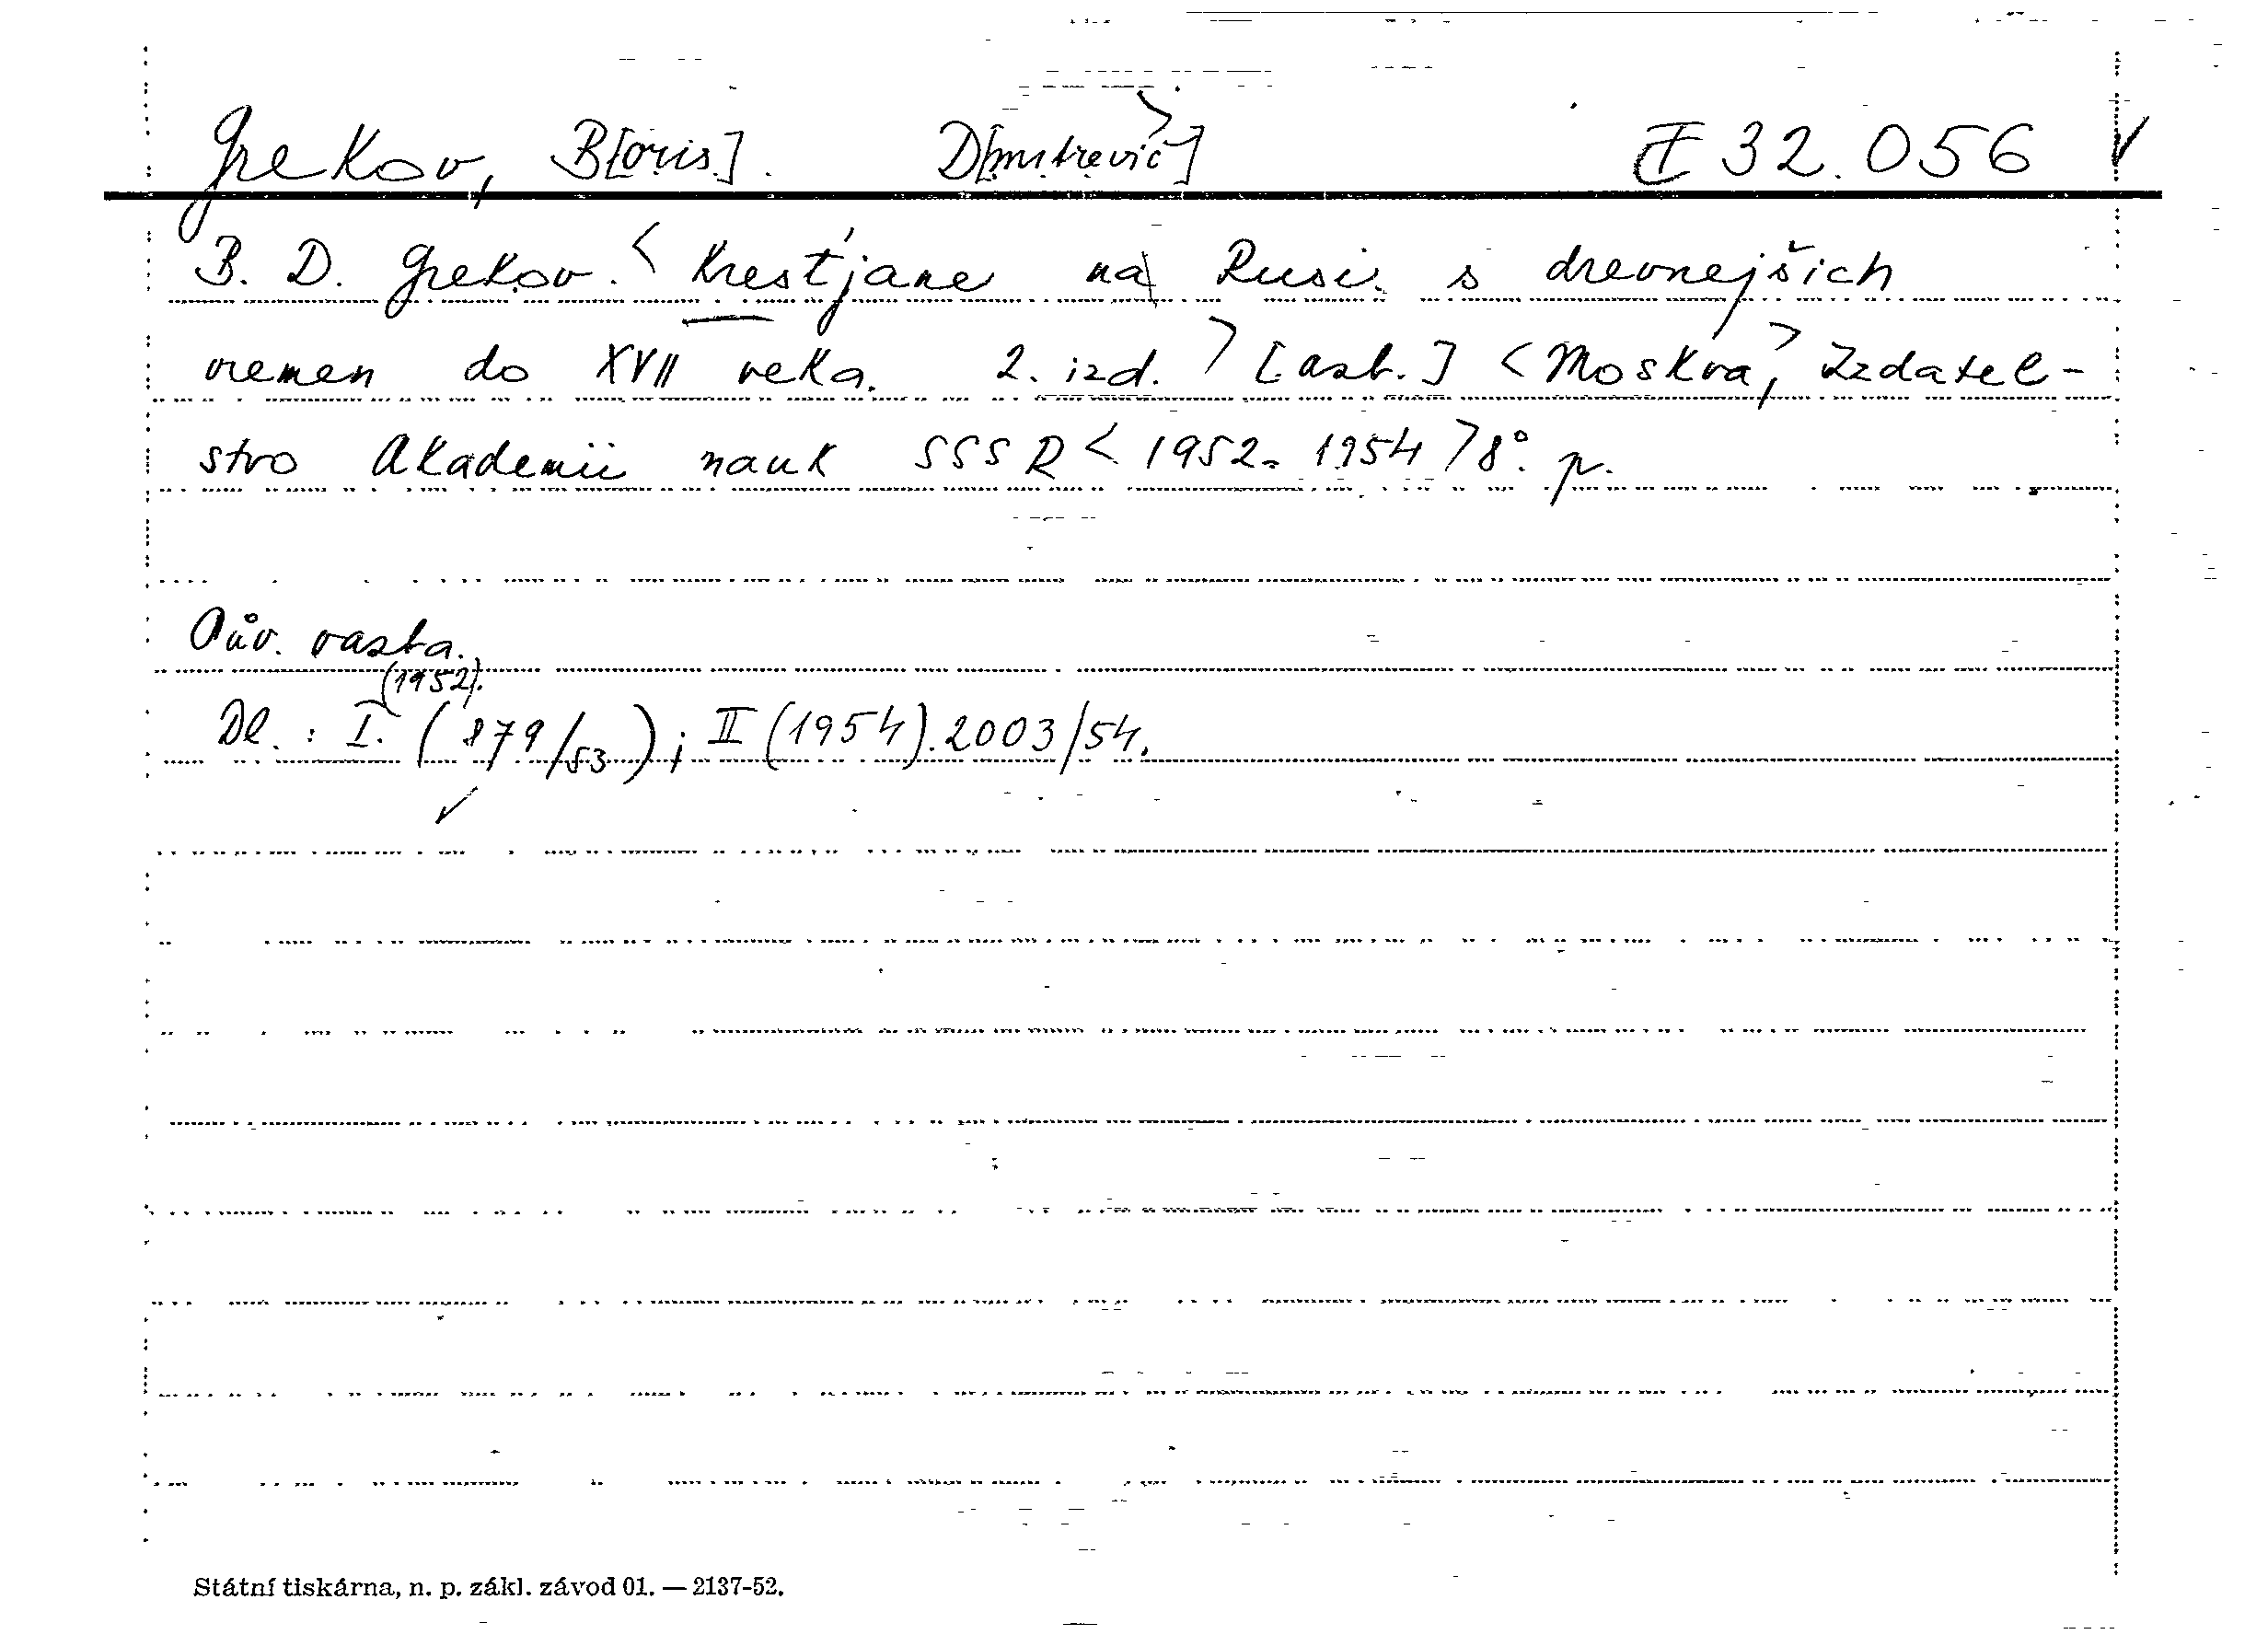 Grekov, B[oris]. D[mitrevič] I 32.056 √
B. D. Grekov. < Krest'jane na Rusi. s drevnejšich
vremen do XVII veka. 2. izd. > [azb.] < Moskva, > Izdatel-
stvo Akademii nauk SSSR < 1952-1954 > 8°. p.
Pův. vazba.
(1952).
Dl. : I. (879/53) ; II (1954). 2003/54.
✓
Státní tiskárna, n. p. zákl. závod 01. — 2137-52.